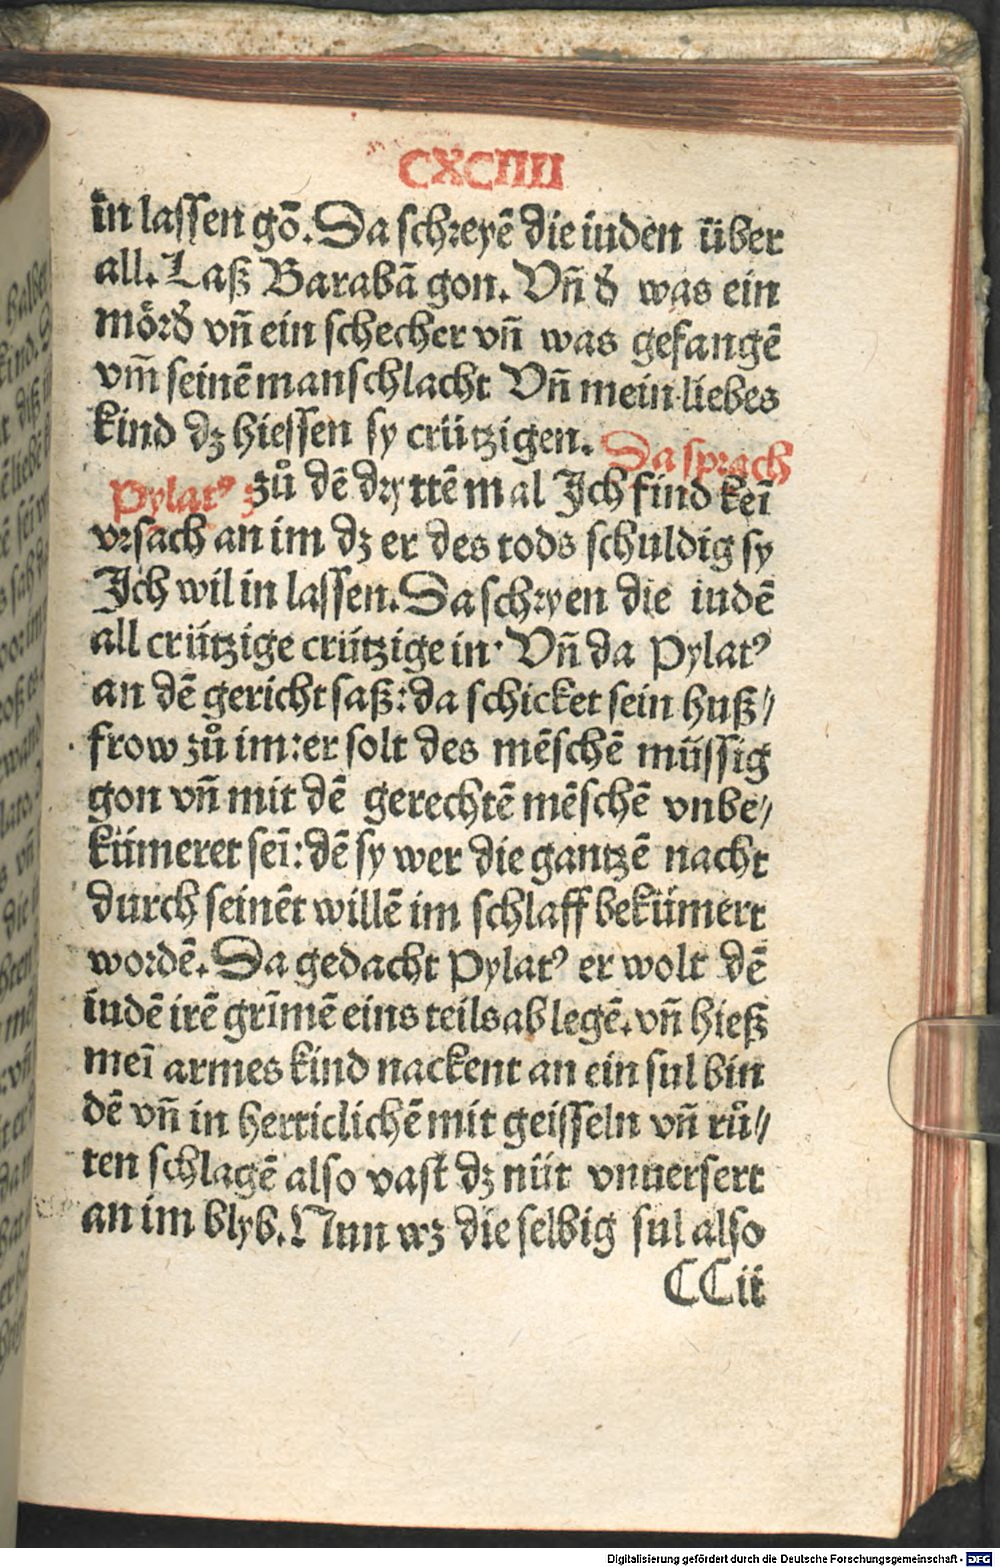 CXCIIII
in lassen gō. Da schreyē die iuden über
all. Laß Barabā gon. Vn̄ d' was ein
mörd' vn̄ ein schecher vn̄ was gefangē
vm̄ seinē manschlacht Vn̄ mein liebes
kind dz hiessen sy crützigen. Da sprach
Pylatꝰ zů dē drytтē mal Ich find keī
vrsach an im dz er des tods schuldig sy
Ich wil in lassen. Da schryen die iudē
all crützige crützige in· Vn̄ da Pylatꝰ
an dē gericht saß: da schicket sein huß//
frow zů im: er solt des mēschē müssig
gon vn̄ mit dē gerechtē mēschē vnbe//
kümeret seī: dē sy wer die gantzē nacht
durch seinēt willē im schlaff bekümert
wordē. Da gedacht Pylatꝰ er wolt dē
iudē irē grīmē eins teils ab legē. vn̄ hieß
meī armes kind nackent an ein sul bin
dē vn̄ in herticlichē mit geisseln vn̄ rů//
ten schlagē also vast dz nüt vnuersert
an im blyb. Nun wz die selbig sul also
CCii
Digitalisierung gefördert durch die Deutsche Forschungsgemeinschaft - DFG